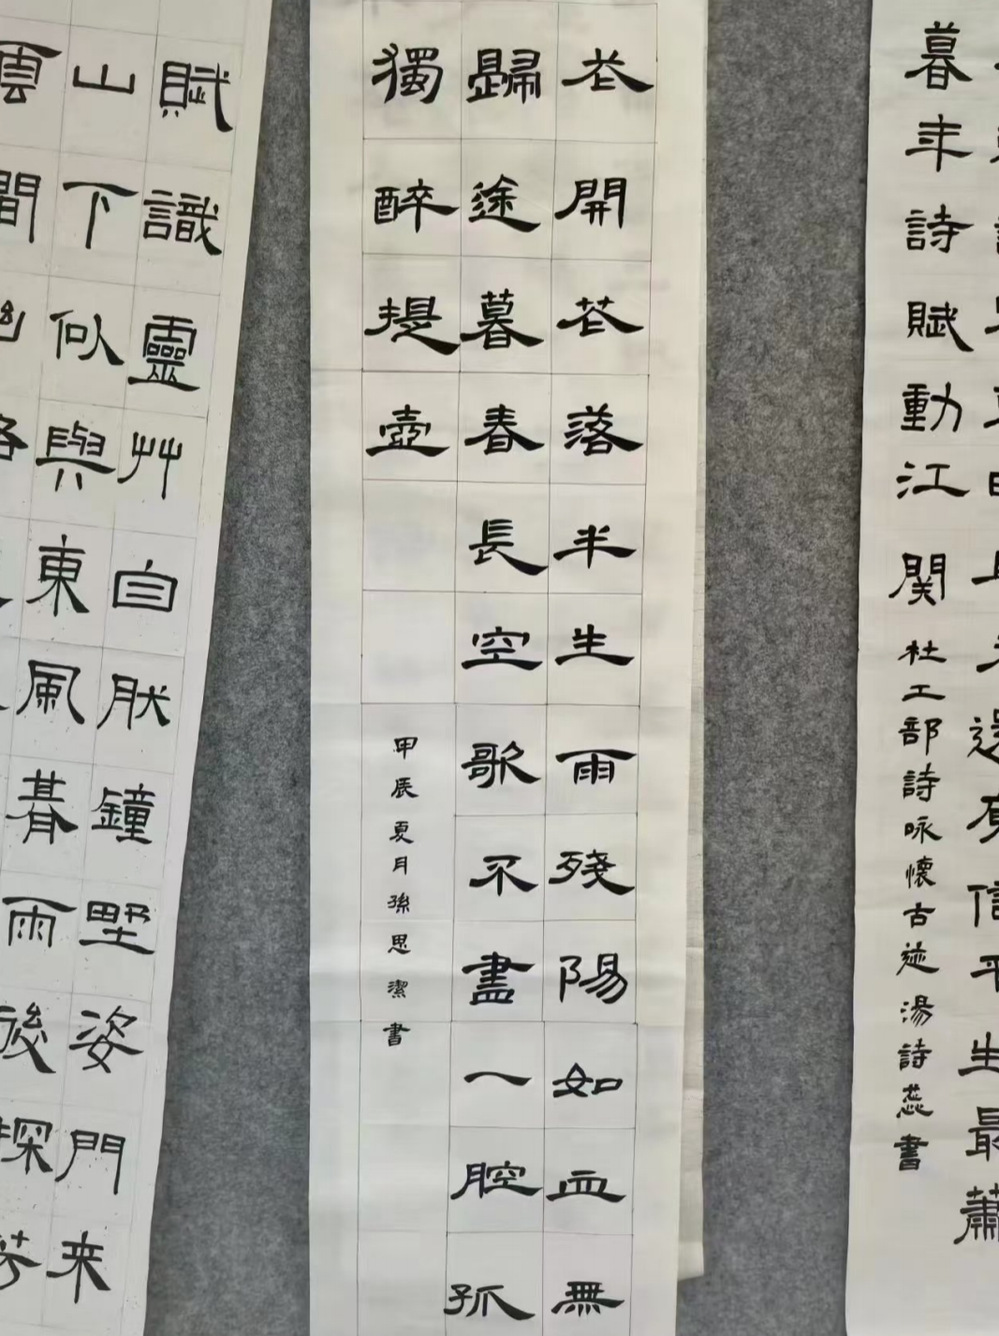 暮年詩賦動江関
還庾信平生最蕭
杜工部詩咏懷古迹湯詩蕊書
花開花落半生雨殘陽如血無
歸途暮春長空歌不盡一腔孤
獨醉提壺
甲辰夏月孫思潔書
賦識靈艸自肰鐘埜姿門来
山下似與東風朞雨後探芳
雲間幽路